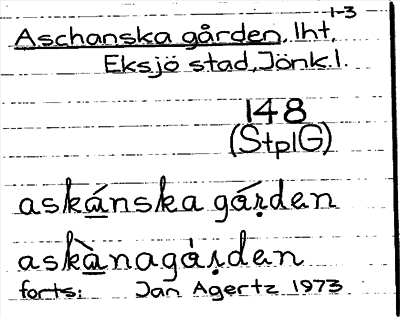 1-3
Aschanska gården, lht,
Eksjö stad, Jönk.l.
148
(StplG)
askánska gáṛden
askànagáṛden
forts: Jan Agertz 1973